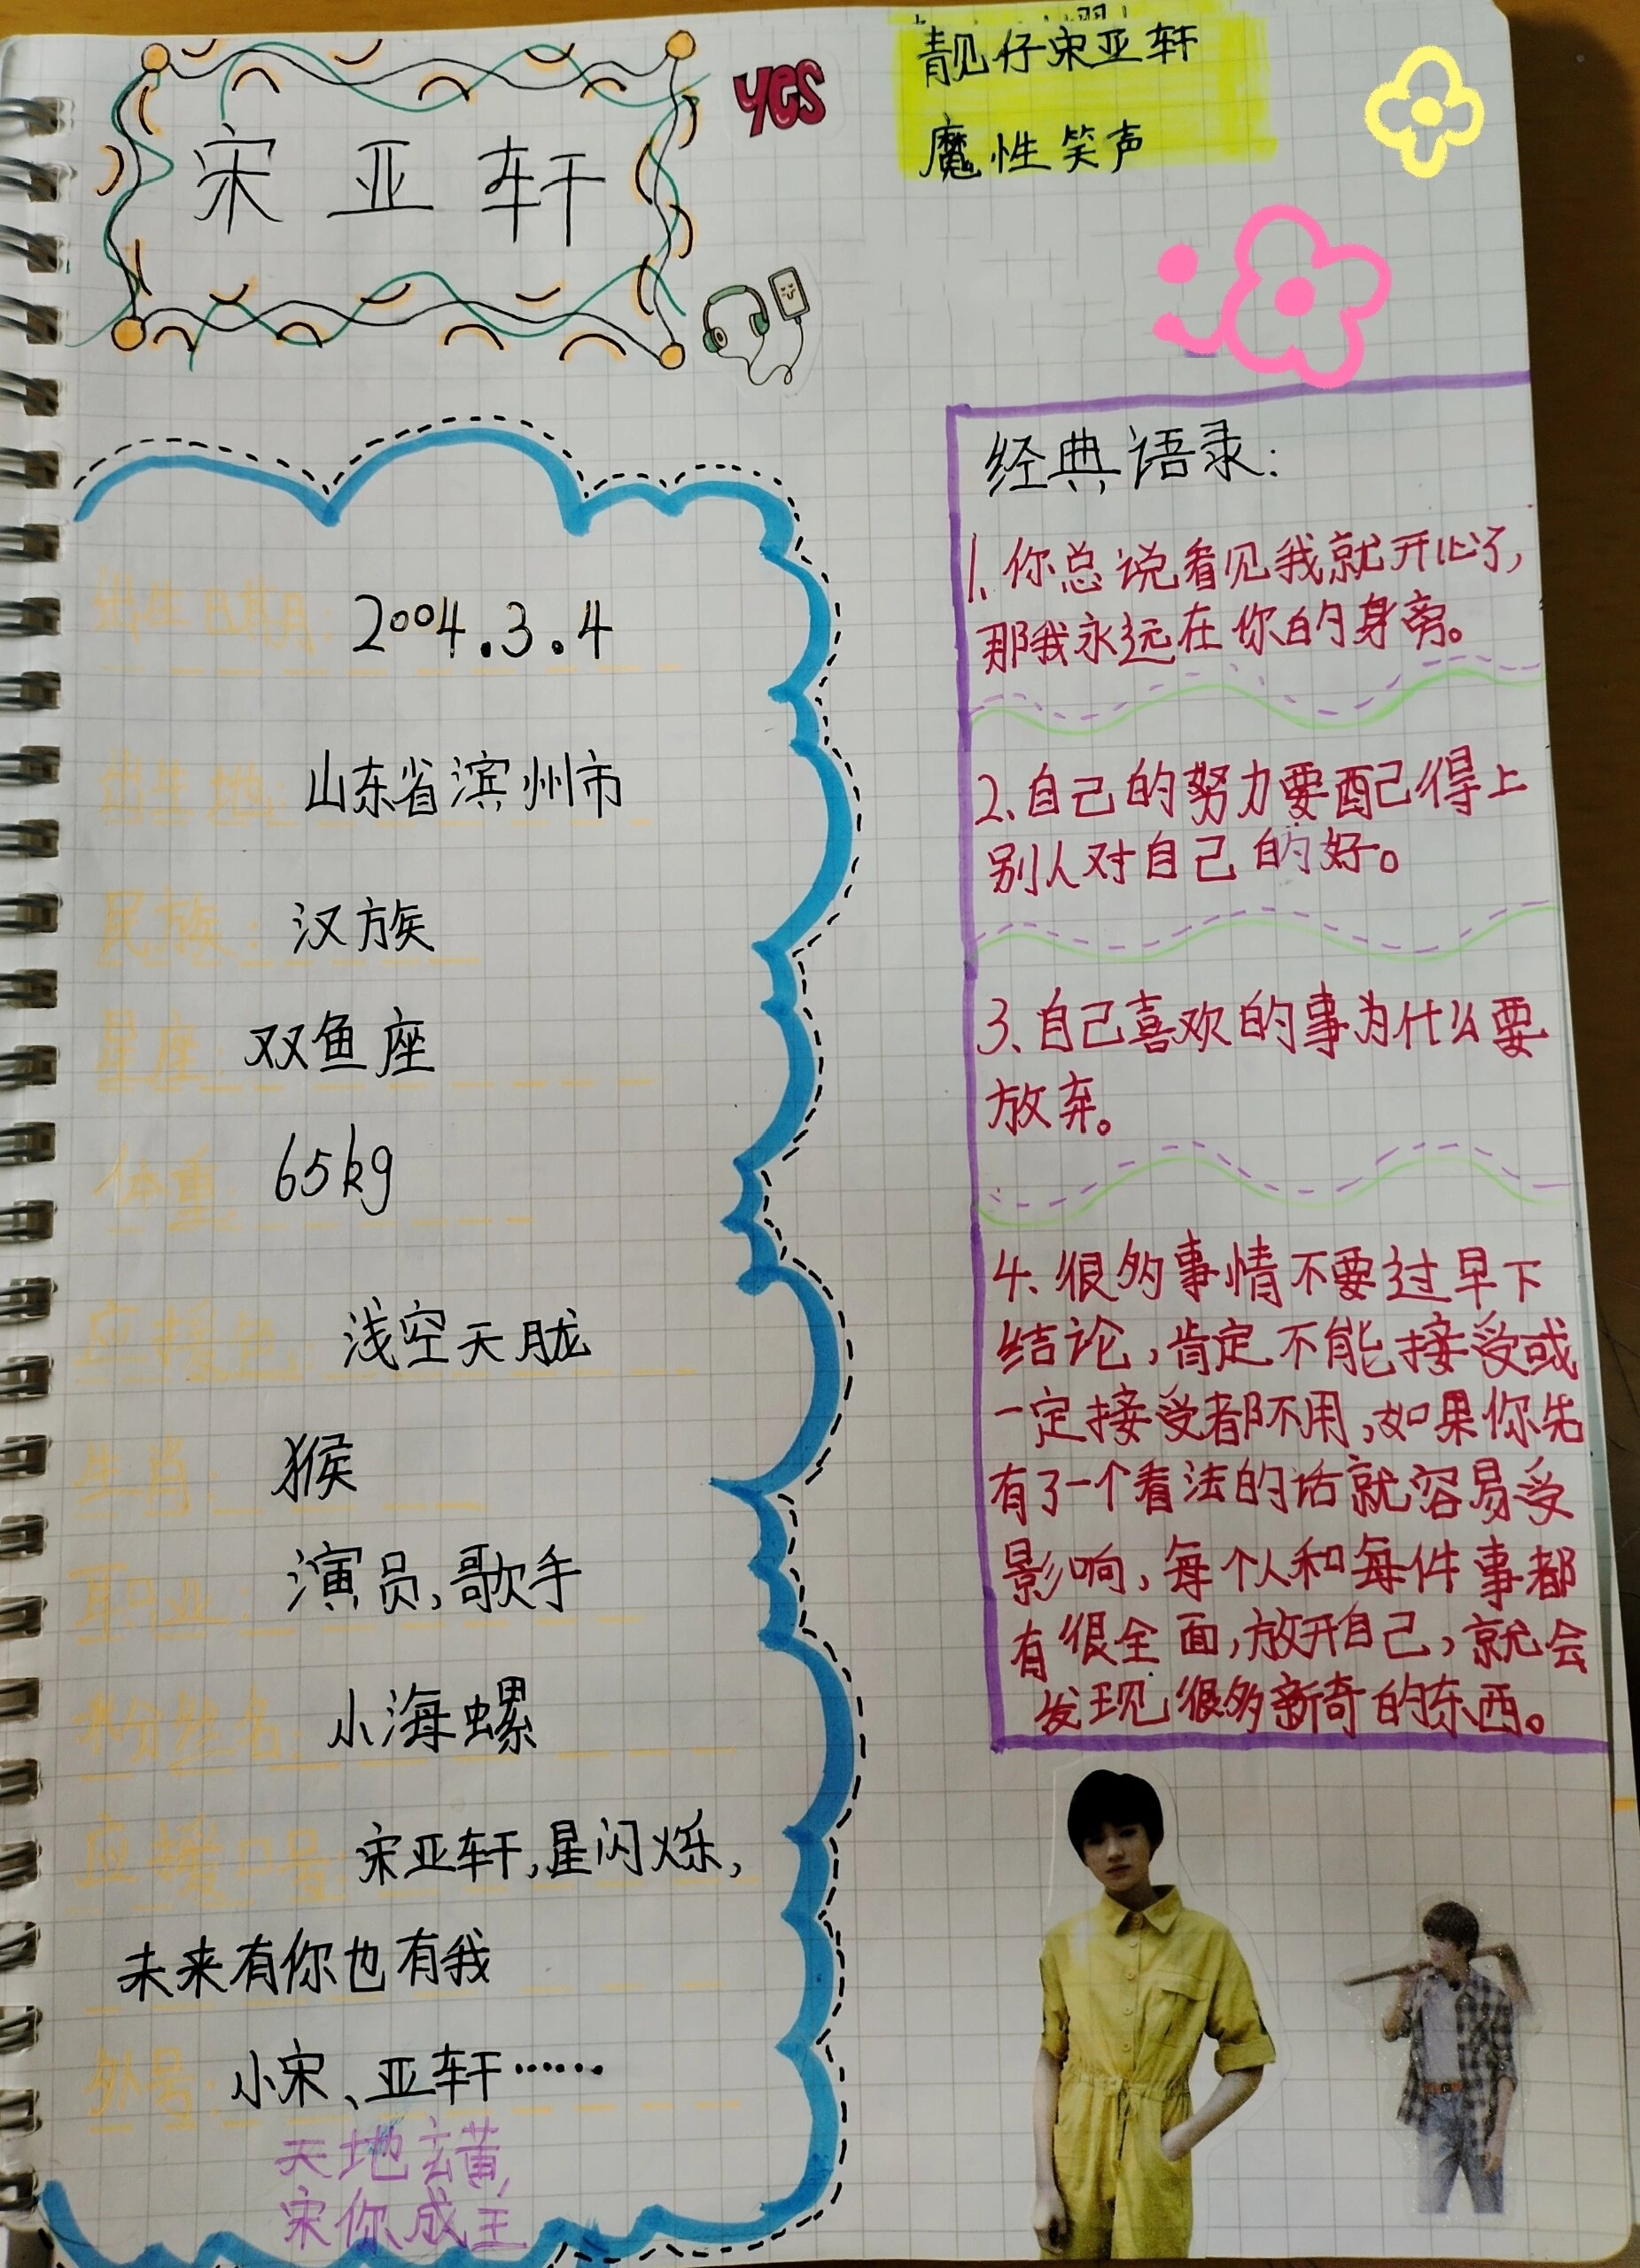 宋亚轩
yes
靓仔宋亚轩
魔性笑声
出生日期: 2004.3.4
出生地: 山东省滨州市
民族: 汉族
星座: 双鱼座
体重: 65kg
应援色: 浅空天胧
生肖: 猴
职业: 演员,歌手
粉丝名: 小海螺
应援口号: 宋亚轩,星闪烁,
未来有你也有我
外号: 小宋、亚轩……
天地玄黄,
宋你成王
经典语录:
1.你总说看见我就开心了,
那我永远在你的身旁。
2、自己的努力要配得上
别人对自己的好。
3、自己喜欢的事为什么要
放弃。
4、很多事情不要过早下
结论,肯定不能接受或
一定接受都不用,如果你先
有了一个看法的话就容易受
影响,每个人和每件事都
有很全面,放开自己,就会
发现很多新奇的东西。